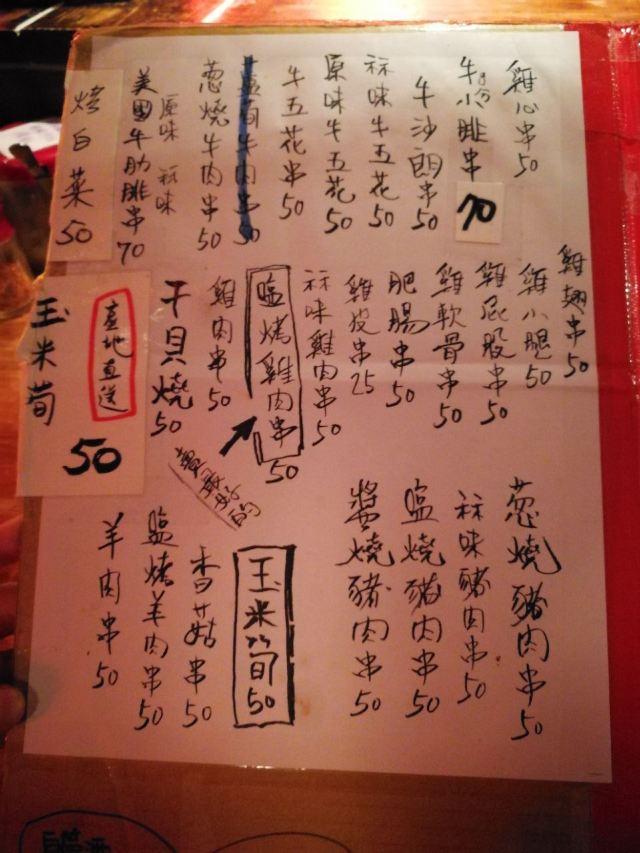 雞心串50
牛小腓串70
牛沙朗串50
袜味牛五花50
原味牛五花50
牛五花串50
葱燒牛肉串50
原味 袜味
美國牛肋腓串70
烤白菜50
雞翅串50
雞小腿50
雞屁股串50
雞軟骨串50
肥腸串50
雞皮串25
袜味雞肉串50
塩烤雞肉串50
賣最好的
雞肉串50
干貝燒50
產地直送
玉米荀50
葱燒豬肉串50
袜味豬肉串50
塩燒豬肉串50
醬燒豬肉串50
玉米荀50
香菇串50
塩烤羊肉串50
羊肉串50